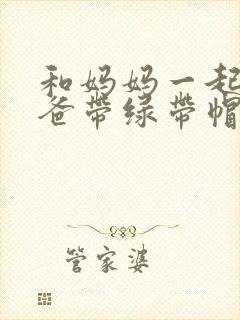 和妈妈一起
爸带绿带帽
管家婆